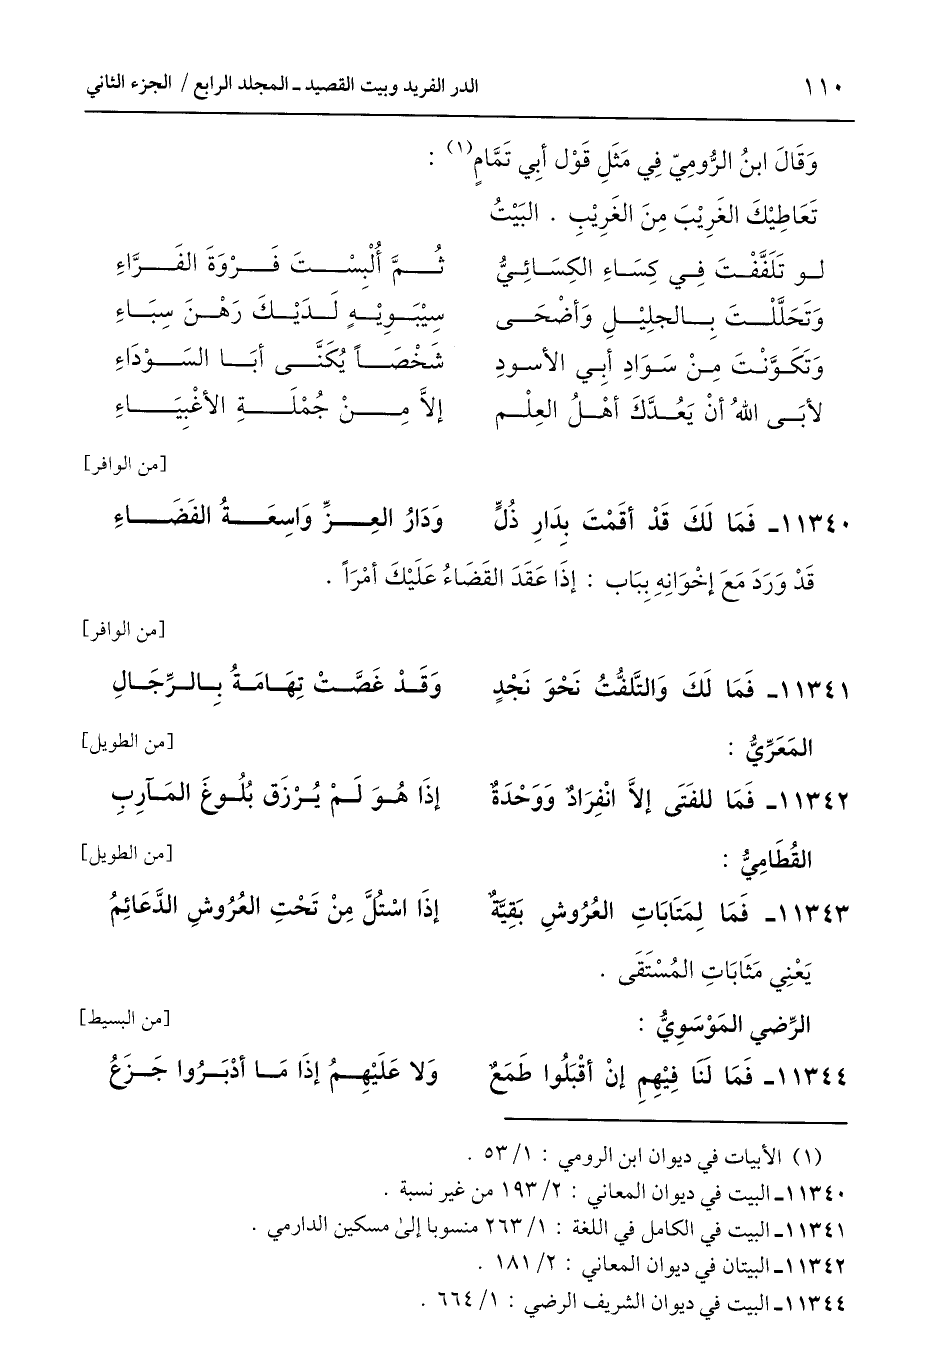 ١١٠ الدر الفريد وبيت القصيد ـ المجلد الرابع / الجزء الثاني
وَقَالَ ابنُ الرُّومِيّ فِي مَثَلِ قَوْل أبي تَمَّامٍ(١) :
تَعَاطِيْكَ الغَرِيْبَ مِنَ الغَرِيْبِ . البَيْتُ
لو تَلَفَّفْتَ فِي كِسَاءِ الكِسَائِيُّ ثُمَّ أُلْبِسْتَ فَرْوَةَ الفَرَّاءِ
وَتَخَلَّلْتَ بِالجلِيْلِ وَأضْحَى سِيْبَوِيْهِ لَدَيْكَ رَهْنَ سِبَاءِ
وَتَكَوَّنْتَ مِنْ سَوَادِ أبي الأسودِ شَخْصَاً يُكَنَّى أبَا السَوْدَاءِ
لأبَى اللهُ أنْ يَعُدَّكَ أهْلُ العِلْمِ إلاَّ مِنْ جُمْلَةِ الأغْبِيَاءِ
[من الوافر]
١١٣٤٠ـ فَمَا لَكَ قَدْ أقَمْتَ بِدَارِ ذُلٍّ وَدَارُ العِزِّ وَاسِعَةُ الفَضَاءِ
قَدْ وَرَدَ مَعَ إخْوَانِهِ بِبَاب : إذَا عَقَدَ القَضَاءُ عَلَيْكَ أمْرَاً .
[من الوافر]
١١٣٤١ـ فَمَا لَكَ وَالتَّلَفُّتُ نَحْوَ نَجْدٍ وَقَدْ غَصَّتْ تِهَامَةُ بِالرِّجَالِ
المَعَرِّيُّ : [من الطويل]
١١٣٤٢ـ فَمَا للفَتَى إلاَّ انْفِرَادٌ وَوَحْدَةٌ إذَا هُوَ لَمْ يُرْزَق بُلُوغَ المَآرِبِ
القُطَامِيُّ : [من الطويل]
١١٣٤٣ـ فَمَا لِمَتَابَاتِ العُرُوشِ بَقِيَّةٌ إذَا اسْتُلَّ مِنْ تَحْتِ العُرُوشِ الدَّعَائِمُ
يَعْنِي مَثَابَاتِ المُسْتَقَى .
الرِّضي المَوْسَوِيُّ : [من البسيط]
١١٣٤٤ـ فَمَا لَنَا فِيْهِمِ إنْ أقْبَلُوا طَمَعٌ وَلا عَلَيْهِمُ إذَا مَا أدْبَرُوا جَزَعُ
(١) الأبيات في ديوان ابن الرومي : ١/ ٥٣ .
١١٣٤٠ـ البيت في ديوان المعاني : ٢/ ١٩٣ من غير نسبة .
١١٣٤١ـ البيت في الكامل في اللغة : ١/ ٢٦٣ منسوبا إلىٰ مسكين الدارمي .
١١٣٤٢ـ البيتان في ديوان المعاني : ٢/ ١٨١ .
١١٣٤٤ـ البيت في ديوان الشريف الرضي : ١/ ٦٦٤ .